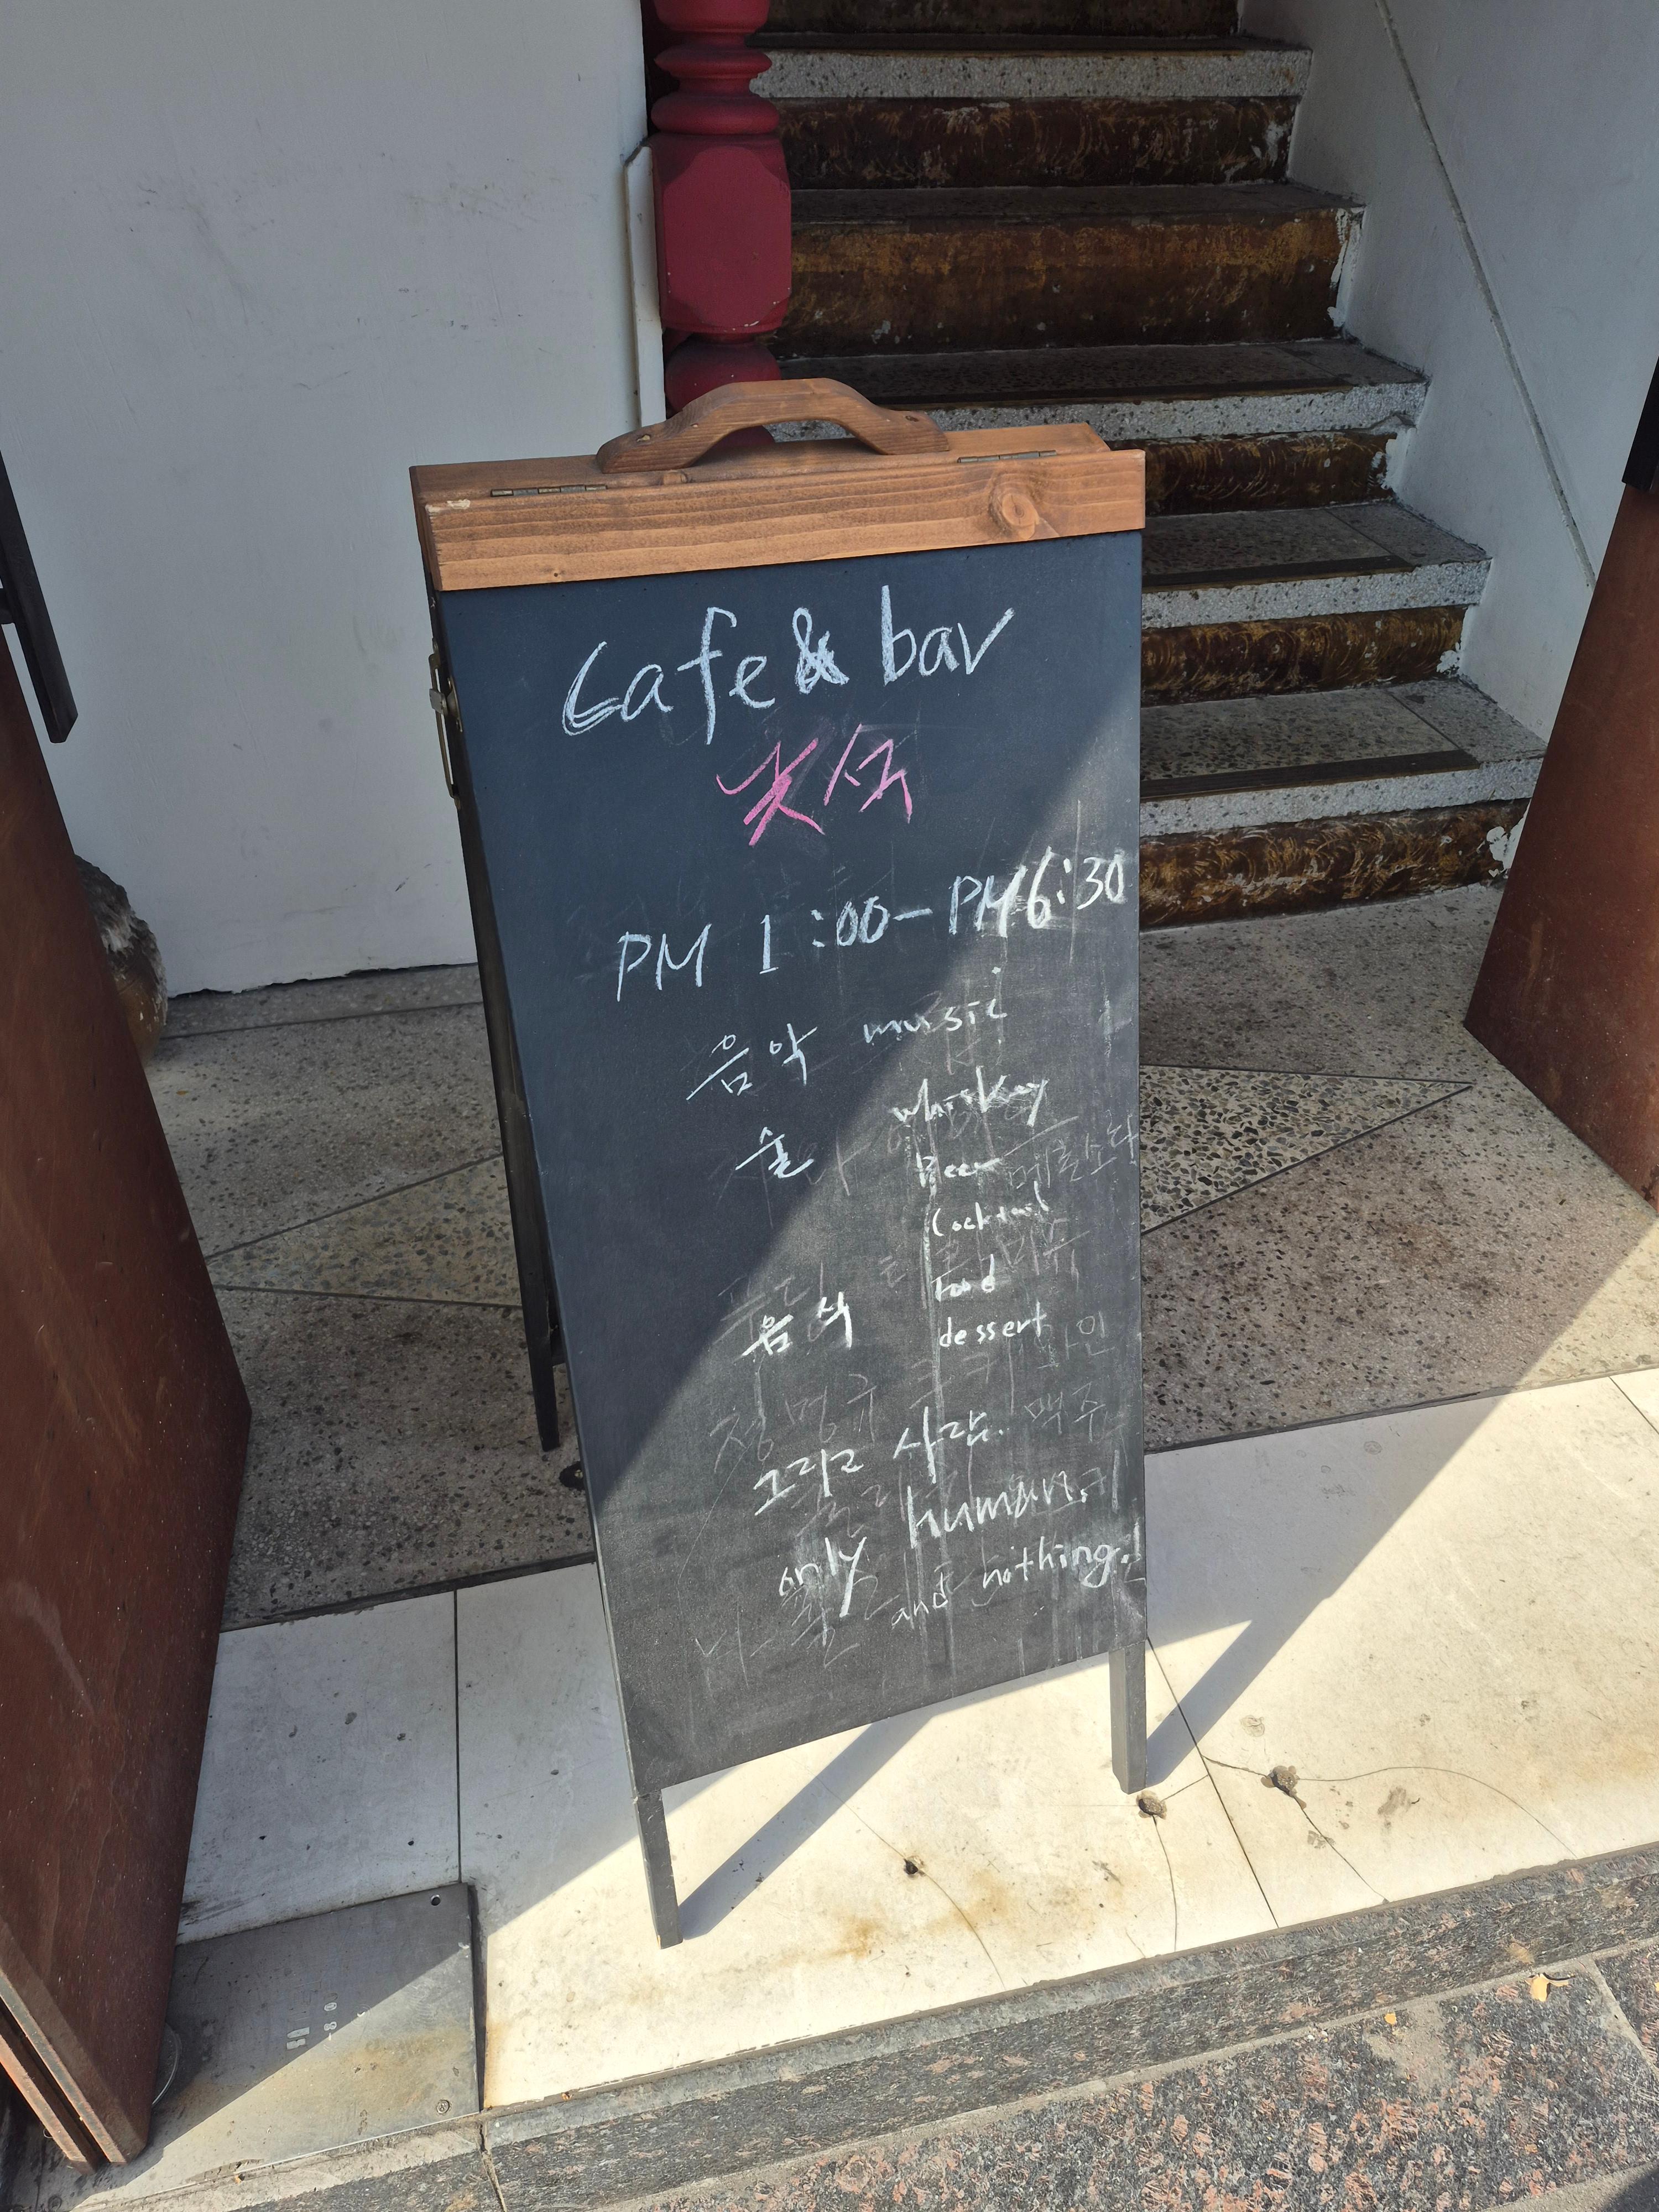 Cafe & bar
낯섦
PM 1:00-PM6:30
음악 music
술 whiskey
Beer
Cocktail
food
음식 dessert
그리고 사람.
only human.
and nothing.